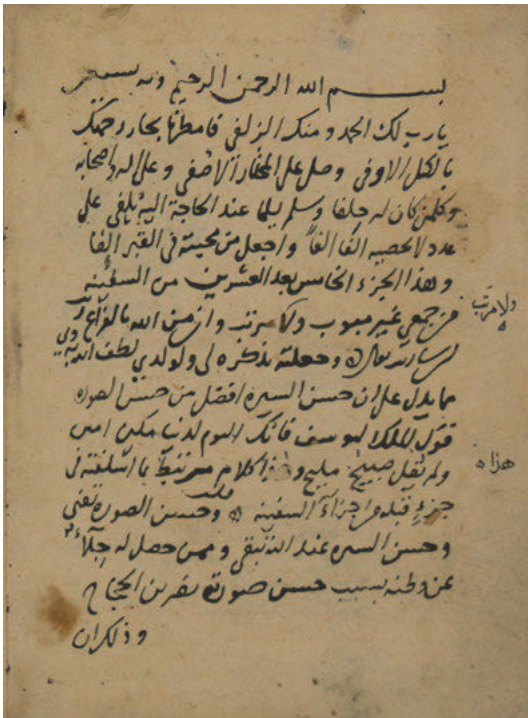 بسم الله الرحمن الرحيم وبه نستعين
يا رب لك الحمد ومنك الزلفى فامطرنا بحار رحمتك
بالكيل الاوفى وصل على المختار الاصفى وعلى اله واصحابه
وكل من كان له حلفا وسلم عند الحاجة اليه على
عدد لا نحصيه الفا الفا واجعل من محبيته في القبر الفا
وهذا الجزء الخامس بعد العشرين من السفينه
من جمعي غير مبوب ولا مرتب وان من الله بالفراغ
ان شا الله تعالى وجعلته تذكره لي ولولدي لطف الله به وبي
مما يدل على ان حسن السيره افضل من حسن الصوره
قول الملك ليوسف فانك اليوم لدينا مكين امين
ولم يقل صبيح مليح وهذا كلام مرتبط بما اسلفته في
جزء قبله من اجزآء السفينه وحسن الصورة يفنى
وحسن السيره عند الله تبقى وممن حصل له جلآء
عن وطنه بسبب حسن صورته نصر بن الحجاج
وذلك ان
ولا مرتب
هذا